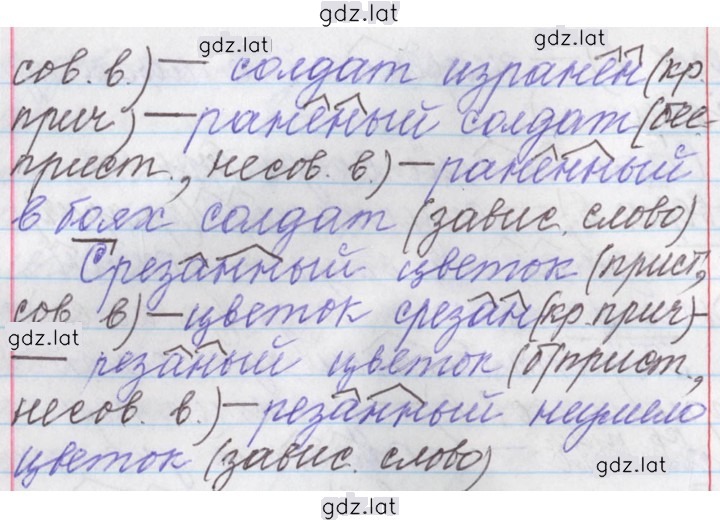 gdz.lat
gdz.lat gdz.lat
сов. в.) — солдат изранен (кр.
прич.) — раненый солдат (бес-
прист., несов. в.) — раненный
в боях солдат (завис. слово)
Срезанный цветок (прист,
сов. в) — цветок срезан (кр. прич) –
gdz.lat
— резаный цветок (б/прист.,
несов. в.) — резанный неумело
цветок (завис. слово)
gdz.lat
gdz.lat